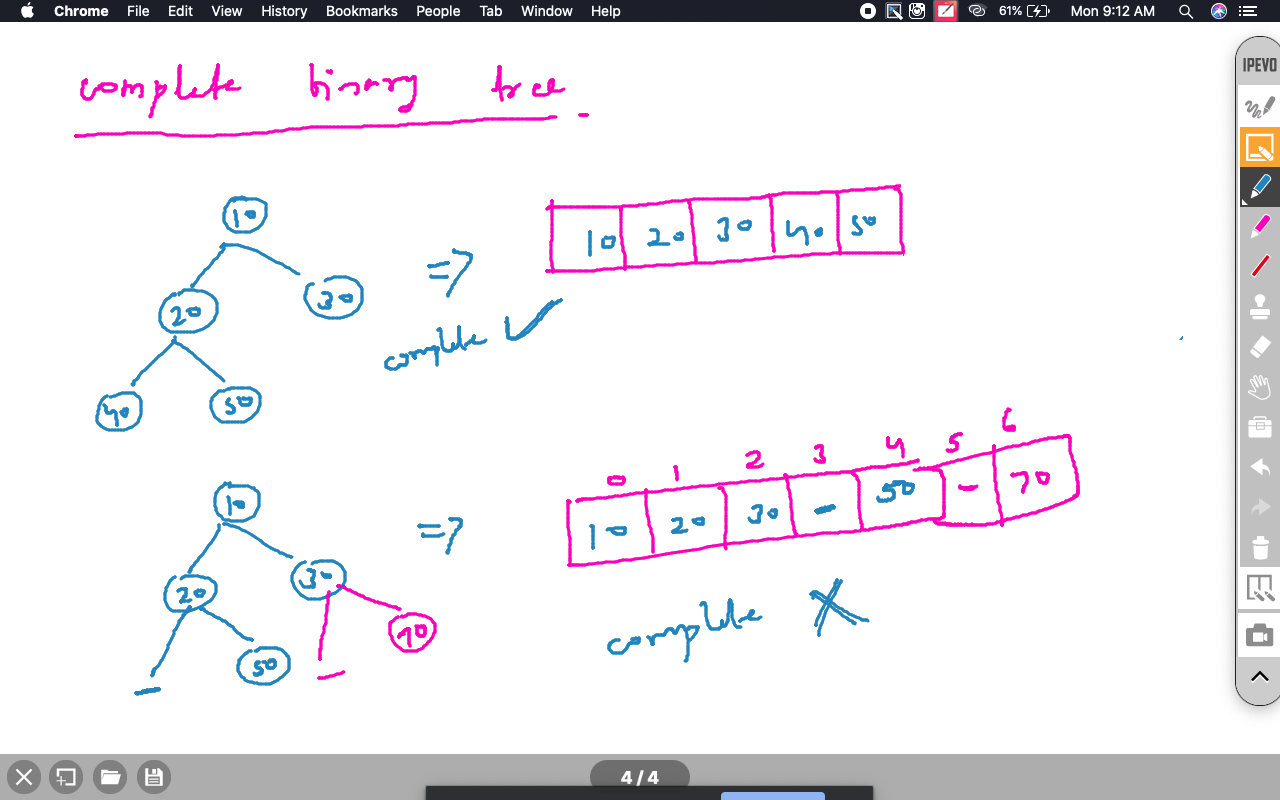 Chrome File Edit View History Bookmarks People Tab Window Help 61% Mon 9:12 AM
IPEVO
complete binary tree.
10
20 30
40 50
=>
10 20 30 40 50
complete ✓
10
20 30
- 50 - 70
=>
0 1 2 3 4 5 6
10 20 30 - 50 - 70
complete X
4 / 4